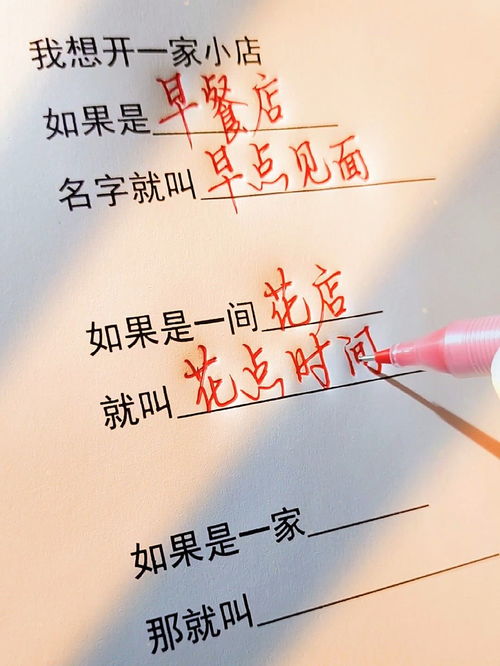 我想开一家小店
如果是早餐店
名字就叫早点见面
如果是一间花店
就叫花点时间
如果是一家
那就叫